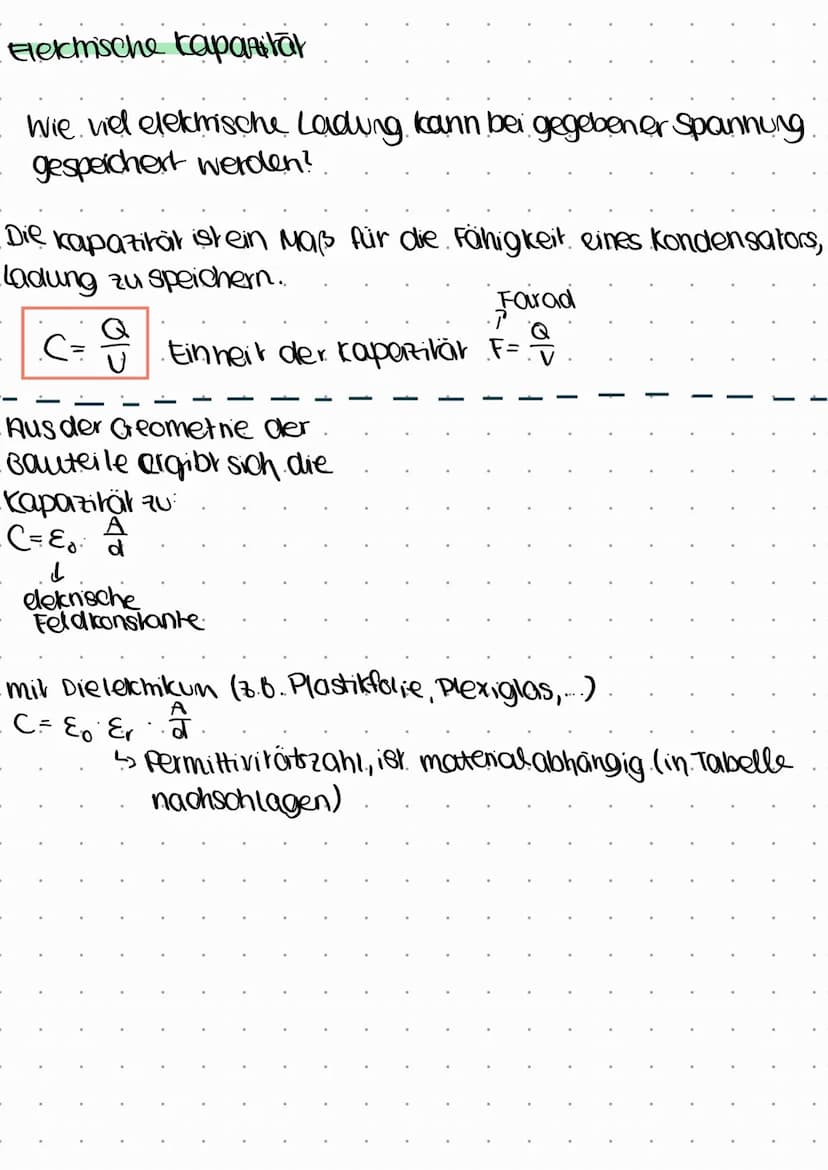 Elektrische Kapazität
Wie viel elektrische Ladung kann bei gegebener Spannung
gespeichert werden?
Die Kapazität ist ein Maß für die Fähigkeit eines Kondensators,
Ladung zu speichern.
Farad
↑
C = Q/U Einheit der Kapazität F = Q/V
Aus der Geometrie der
Bauteile ergibt sich die
Kapazität zu:
C = ε₀ · A/d
↓
elektrische
Feldkonstante
mit Dielektrikum (z.B. Plastikfolie, Plexiglas,...)
C = ε₀ · εr · A/d
↳ Permittivitätszahl, ist materialabhängig (in Tabelle
nachschlagen)